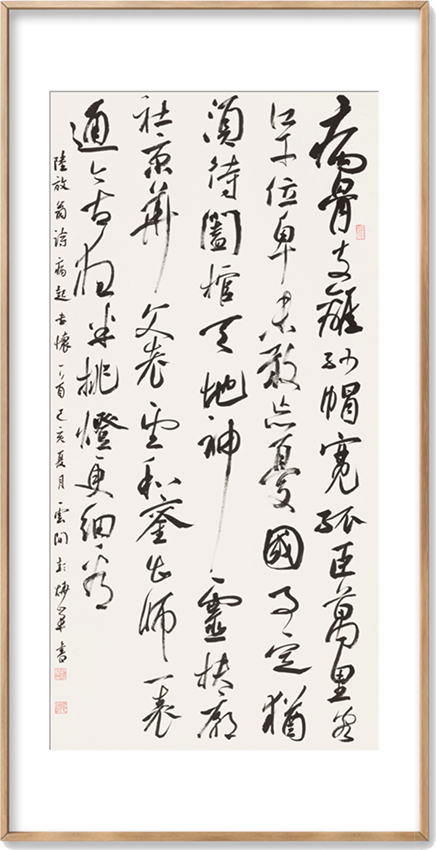 病骨支離紗帽寬孤臣萬里客
江干位卑未敢忘憂國事定猶
須待闔棺天地神靈扶廟
社京華父老望和鑾出師一表
通今古夜半挑燈更細看
陸放翁詩病起書懷一首己亥夏月雲間於書